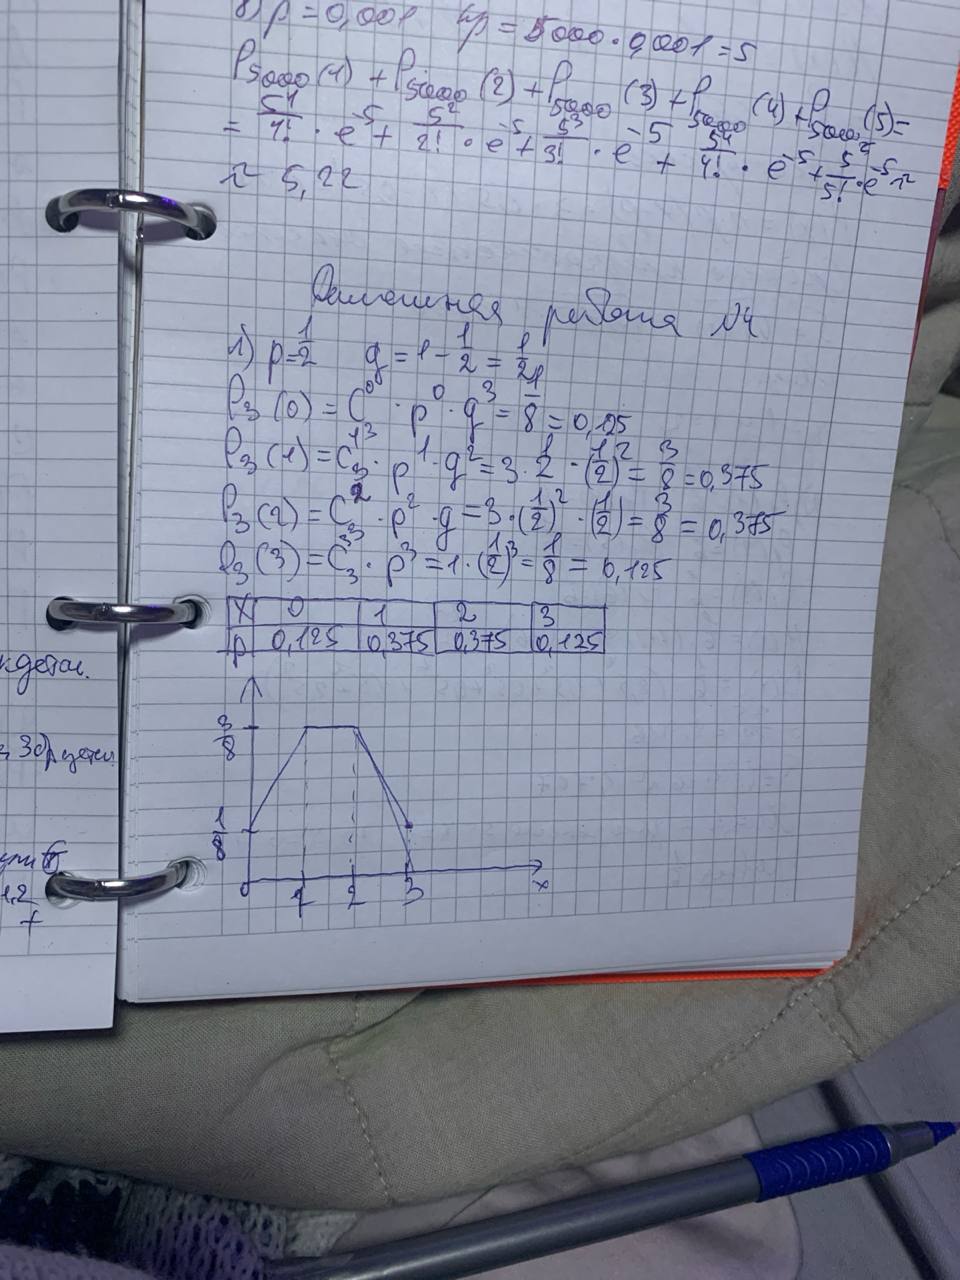 8) p = 0,001 λp = 5000 · 0,001 = 5
P₅₀₀₀(1) + P₅₀₀₀(2) + P₅₀₀₀(3) + P₅₀₀₀(4) + P₅₀₀₀(5) =
= 5¹/1! · e⁻⁵ + 5²/2! · e⁻⁵ + 5³/3! · e⁻⁵ + 5⁴/4! · e⁻⁵ + 5⁵/5! · e⁻⁵ ≈
≈ 5,22
Домашняя работа №4
1) p = 1/2 q = 1 - 1/2 = 1/2
P₃(0) = C₃⁰ · p⁰ · q³ = 1/8 = 0,125
P₃(1) = C₃¹ · p¹ · q² = 3 · 1/2 · (1/2)² = 3/8 = 0,375
P₃(2) = C₃² · p² · q = 3 · (1/2)² · (1/2) = 3/8 = 0,375
P₃(3) = C₃³ · p³ = 1 · (1/2)³ = 1/8 = 0,125
X 0 1 2 3
p 0,125 0,375 0,375 0,125
3/8
1/8
0 1 2 3 x